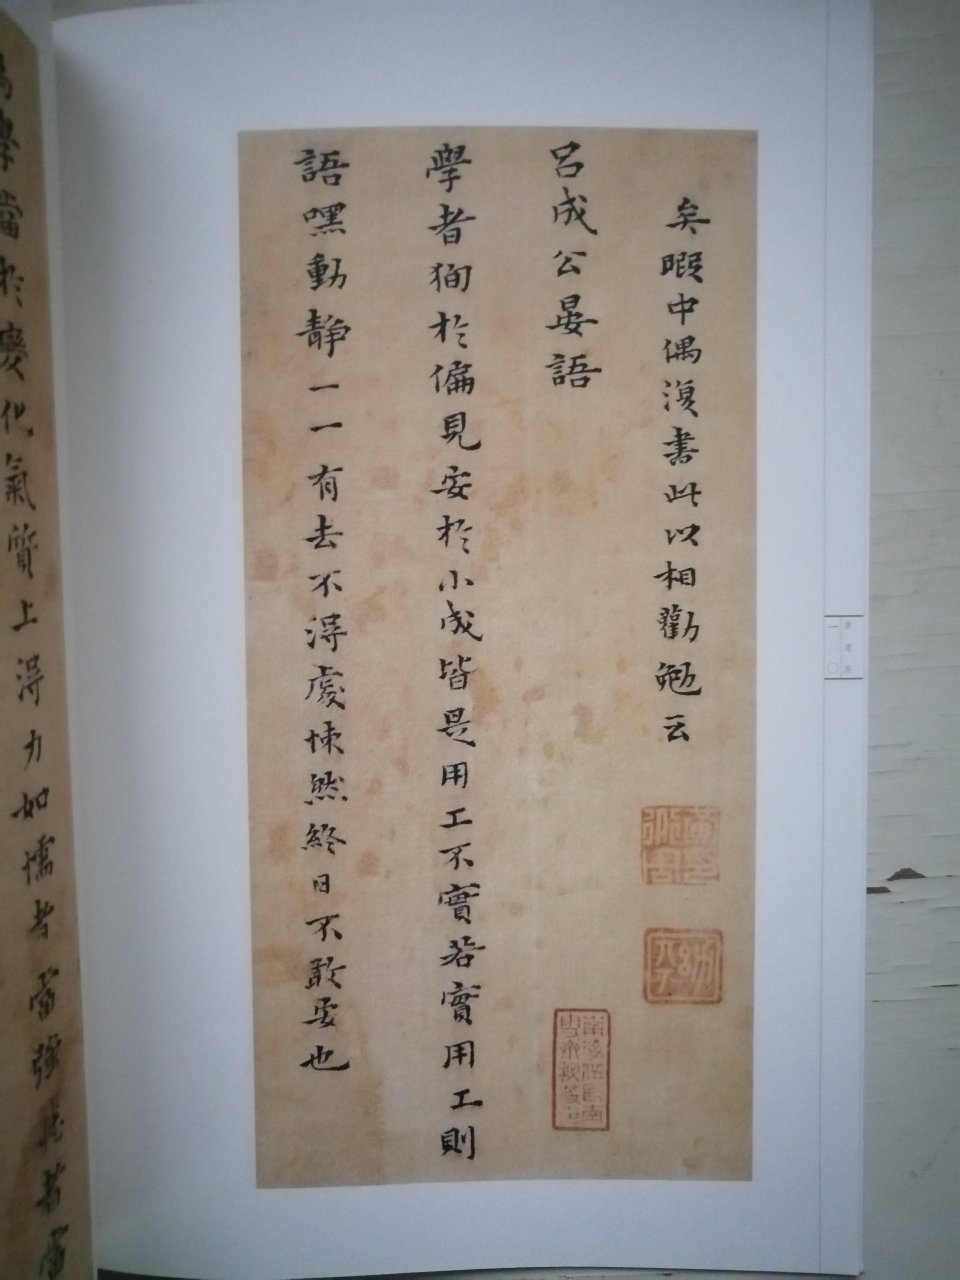 矣暇中偶復書此以相勸勉云
呂成公晏語
學者狥於偏見安於小成皆是用工不實若實用工則
語嘿動靜一一有去不得處悚然終日不敢安也
當於變化氣質上得力如懦者當強
一〇